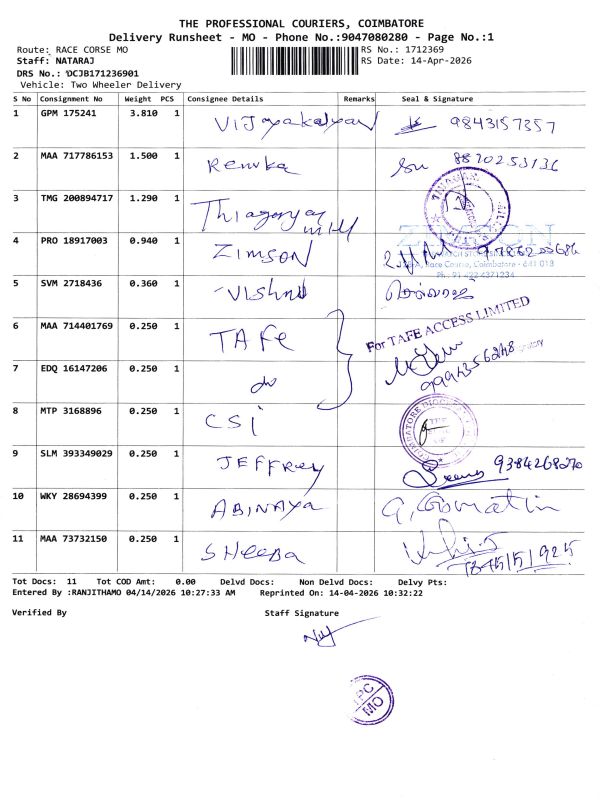 THE PROFESSIONAL COURIERS, COIMBATORE
Delivery Runsheet - MO - Phone No.:9047080280 - Page No.:1
Route: RACE CORSE MO
RS No.: 1712369
Staff: NATARAJ
RS Date: 14-Apr-2026
DRS No.: DCJB171236901
Vehicle: Two Wheeler Delivery
S No Consignment No Weight PCS Consignee Details Remarks Seal & Signature
1 GPM 175241 3.810 1 Vijayakalyan 9843157357
2 MAA 717786153 1.500 1 Renuka 8870253136
3 TMG 200894717 1.290 1 Thiagaryar mill
4 PRO 18917003 0.940 1 ZIMSON
ZIMSON
Race Course, Coimbatore - 641 018
Ph : 91 422 4371234
5 SVM 2718436 0.360 1 Vishnu
6 MAA 714401769 0.250 1 TAFE
For TAFE ACCESS LIMITED
7 EDQ 16147206 0.250 1 do
8 MTP 3168896 0.250 1 CSI
COIMBATORE DIOCESE
9 SLM 393349029 0.250 1 JEFFREY 9384268270
10 WKY 28694399 0.250 1 ABINAYA G. Gomathi
11 MAA 73732150 0.250 1 SHEEBA
Tot Docs: 11 Tot COD Amt: 0.00 Delvd Docs: Non Delvd Docs: Delvy Pts:
Entered By :RANJITHAMO 04/14/2026 10:27:33 AM Reprinted On: 14-04-2026 10:32:22
Verified By Staff Signature
TPC
MO